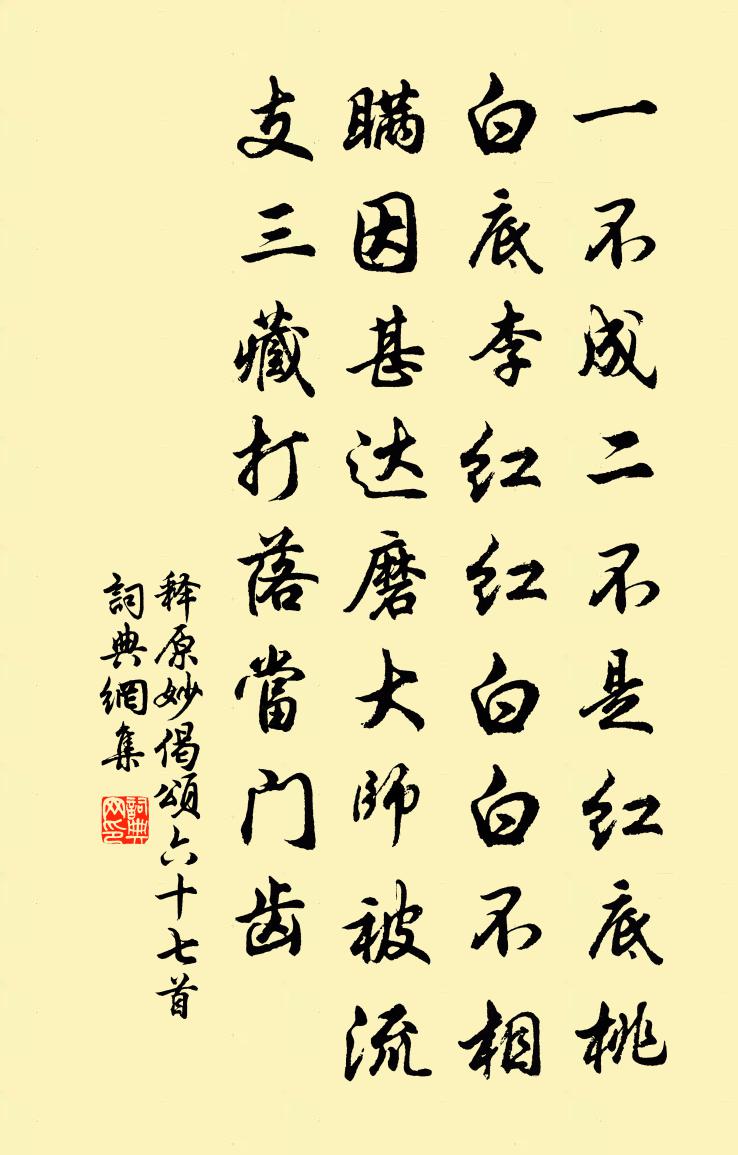 一不成二不是红底桃
白底李红红白白不相
瞞因甚达磨大师被流
支三藏打落當门齿
释原妙偈頌六十七首
詞典網集
詞典网印